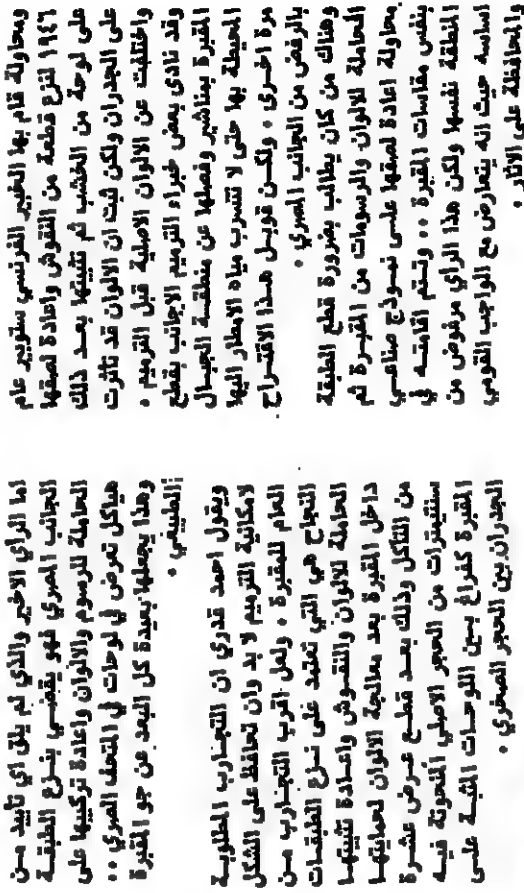 ومحاولة قام بها الخبير الفرنسي ستوبير عام
١٩٤٦ لنزع قطعة من النقوش واعادة لصقها
على لوحة من الخشب ثم تثبيتها بعد ذلك
على الجدران ولكن ثبت ان الالوان قد تاثرت
واختلفت عن الالوان الاصلية قبل الترميم .
وقد نادى بعض خبراء الترميم الاجانب بقطع
المقبرة بمناشير وفصلها عن منطقة الجبال
المحيطة بها حتى لا تتسرب مياه الامطار اليها
مرة اخرى . ولكن قوبل هذا الاقتراح
بالرفض من الجانب المصري .
وهناك من كان يطالب بضرورة قطع الطبقة
الحاملة للالوان والرسومات من المقبرة ثم
محاولة اعادة لصقها على نموذج صناعي
بنفس مقاسات المقبرة .. وتتم اقامته في
المنطقة نفسها ولكن هذا الراي مرفوض من
اساسه حيث انه يتعارض مع الواجب القومي
والمحافظة على الاثار .
اما الراي الاخير والذي لم يلق اي تأييد من
الجانب المصري فهو يقضي بنزع الطبقة
الحاملة للرسوم والالوان واعادة تركيبها على
هياكل تعرض في لوحات في المتحف المصري ..
وهذا يجعلها بعيدة كل البعد عن جو المقبرة
الطبيعي .
ويقول احمد قدري ان التجارب المطلوبة
لامكانية الترميم لا بد وان تحافظ على الشكل
العام للمقبرة . ولعل اقرب التجارب من
النجاح هي التي تعتمد على نزع الطبقات
الحاملة للالوان والنقوش واعادة تثبيتها
داخل المقبرة بعد معالجة الالوان لحمايتها
من التآكل وذلك بعد قطع عرض عشرة
سنتيمترات من الحجر الاصلي المنحوتة فيه
المقبرة كفراغ بين اللوحات المثبتة على
الجدران بين الحجر الصخري .